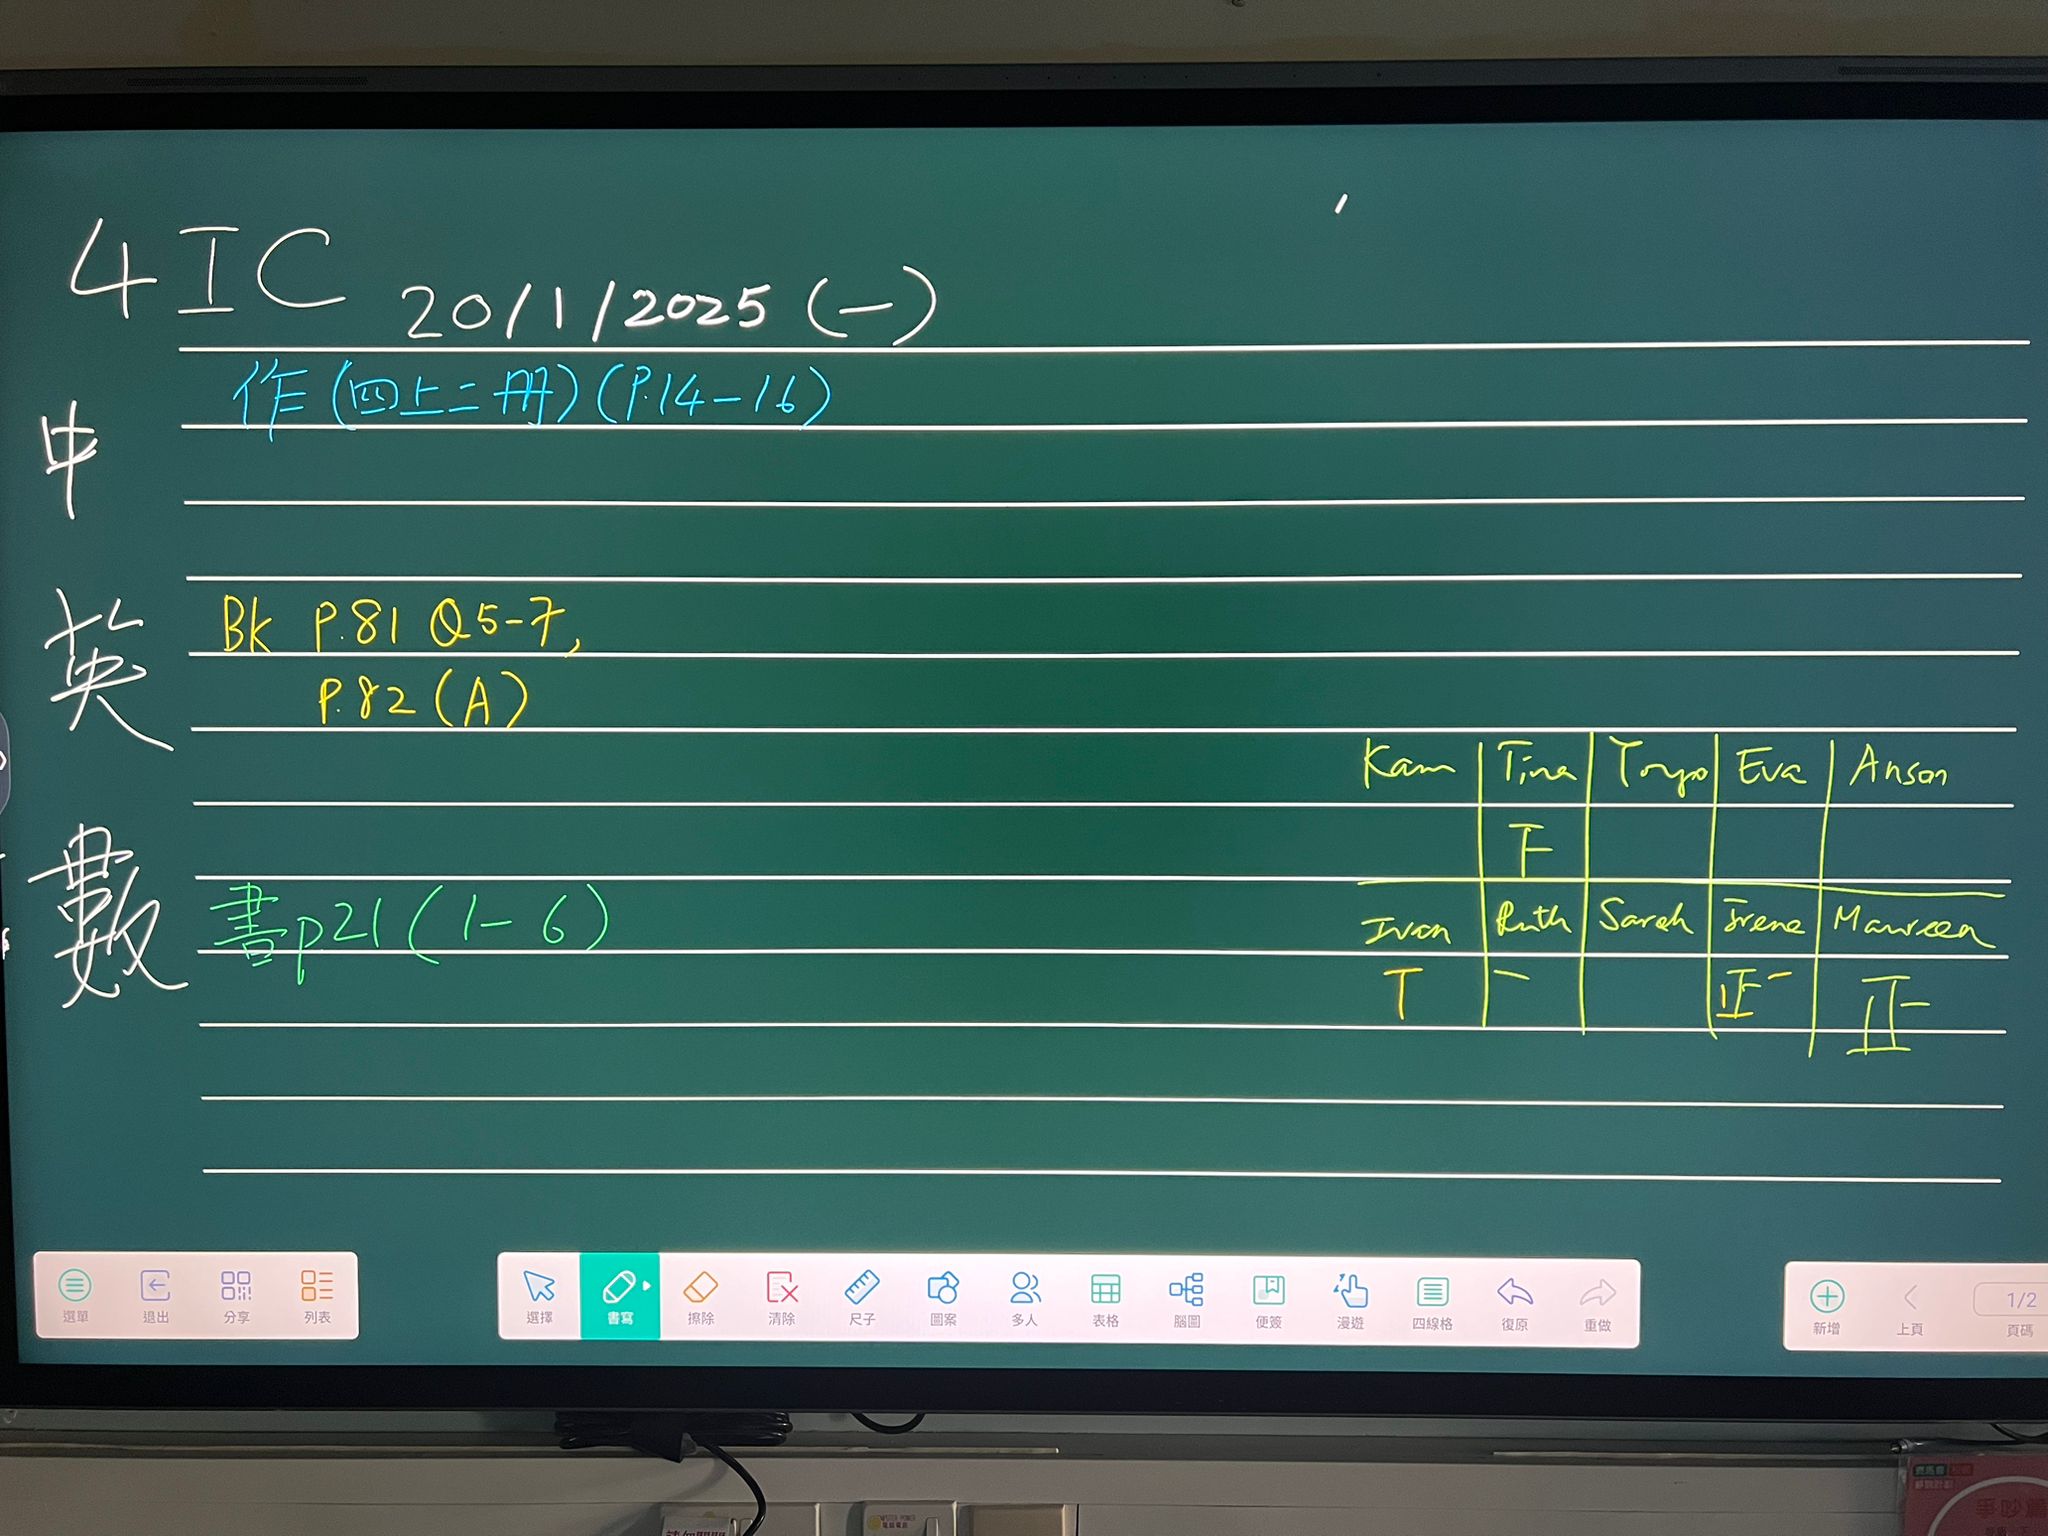 4IC 20/1/2025 (一)
中 作(四上二冊)(P.14-16)
英 Bk P.81 Q5-7,
P.82 (A)
數 書p21(1-6)
Kam Tina Eva Anson
下
Ivan Ruth Sarah Irene Maureen
T 一 正一 正
選單 退出 分享 列表
選擇 書寫 擦除 清除 尺子 圖案 多人 表格 腦圖 便簽 漫遊 四線格 復原 重做
新增 上頁 1/2 頁碼